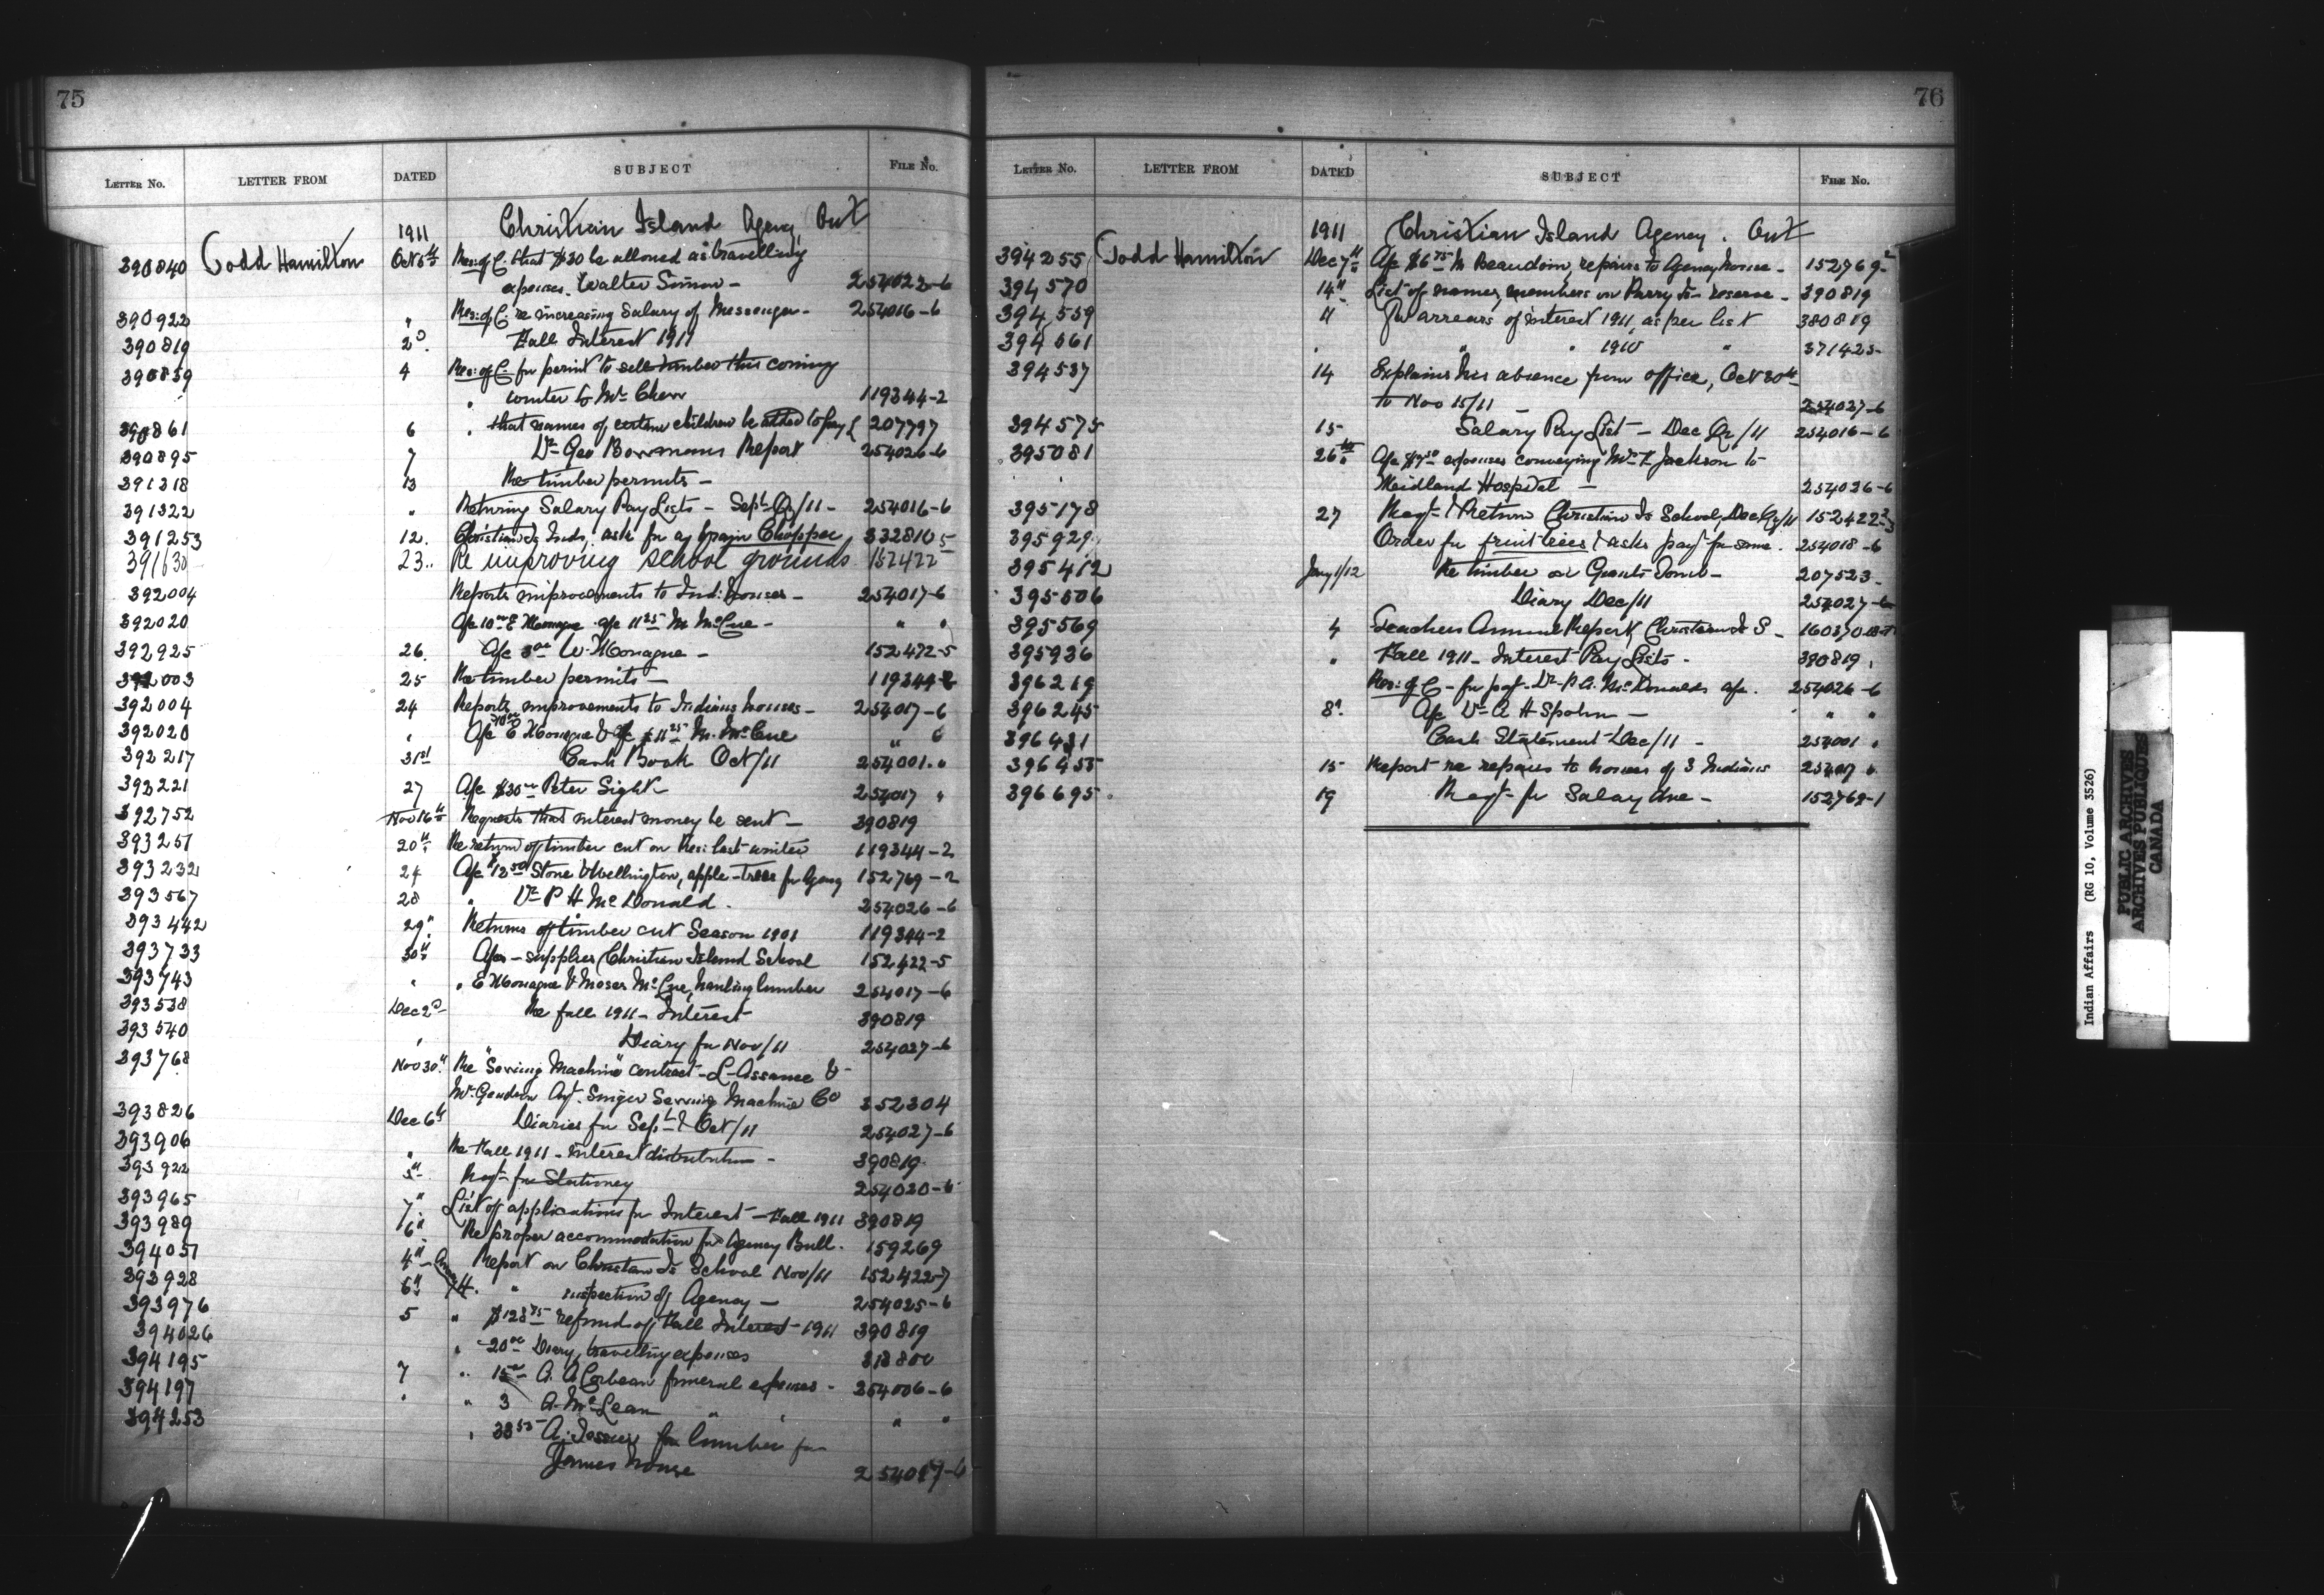 75
LETTER No. LETTER FROM DATED SUBJECT FILE No.
1911 Christian Island Agency Ont
390840 Todd Hamilton Oct 5th Res: of C. that $30 be allowed as travelling
expenses. Walter Simon - 254023-6
390922 " Res: of C. re increasing Salary of Messenger - 254016-6
390819 2d Fall Interest 1911
390859 4 Res: of C. for permit to sell timber this coming
winter to Mr Chew 119344-2
390861 6 " that names of certain children be added to pay L 207797
390895 7 Dr Geo Bowmans Report 254026-6
391318 13 Re timber permits -
391322 " Returning Salary Pay Lists - Sept Qr/11 - 254016-6
391253 12. Christian Is Inds. ask for a grain Chopper 332810
391630 23.. Re improving school grounds 152422-5
392004 Reports improvements to Ind: houses - 254017-6
392020 a/c 10.00 E Monague a/c 11.25 M McCue - " "
392925 26. a/c 3.00 W. Monague - 152422-5
392003 25 Re timber permits - 119344-2
392004 24 Reports improvements to Indians houses - 254017-6
392020 " a/c 10.00 E Monague & a/c $11.25 M. McCue " 6
392217 31st Cash Book Oct/11 254001 "
392221 27 a/c $30.00 Peter Sight 254017 "
392752 Nov 16th Requests that interest money be sent - 390819
393251 20th Re return of timber cut on Res: last winter 119344-2
393232 24 a/c $12.50 Stone & Wellington, apple-trees for Agency 152769-2
393567 28 " Dr P H McDonald. 254026-6
393442 29" Returns of timber cut Season 1901 119344-2
393733 30th a/cs - supplies Christian Island School 152422-5
393743 " " E Monague & Moses McCue, hauling lumber 254017-6
393538 Dec 2d Re fall 1911 - Interest 390819
393540 " Diary for Nov/11 254027-6
393768 Nov 30th Re "Sewing Machine" contract - L-Assance &
Mr. Gendron Agt. Singer Sewing Machine Co 352304
393826 Dec 6th Diaries for Sept & Oct/11 254027-6
393906 " Re Fall 1911 - Interest distribution - 390819
393922 5th Reqt- for Stationery 254020-6
393965 7" List of applications for Interest - Fall 1911 390819
393989 6" Re proper accommodation for Agency Bull. 159269
394051 4th Report on Christian Is School Nov/11 152422-7
393928 6th " inspection of Agency - 254025-6
393976 5 " $128.75 refund of Fall Interest - 1911 390819
394026 " 20.00 Diary, travelling expenses
394195 7 " 15.00 A. A Corbeau funeral expenses - 254006-6
394197 " " 3 A. McLean " " " "
394253 " 38.55 A. Tessier for lumber for
James house 254017-6
76
LETTER No. LETTER FROM DATED SUBJECT FILE No.
1911 Christian Island Agency. Ont
394255 Todd Hamilton Dec 7th a/c $6.75 M Beaudoin, repairs to Agency house - 152769-2
394570 14" List of names, members on Parry Is- reserve - 390819
394559 " For arrears of interest 1911, as per list 380819
394561 " " " 1910 " 371423-
394537 14 Explains his absence from office, Oct 30th
to Nov 15/11 - 254027-6
394575 15- Salary Pay List - Dec Qr/11 254016-6
395081 26th a/c $7.50 expenses conveying Mrs F. Jackson to
Meidland Hospital - 254026-6
395178 27 Reqt- & Return Christian Is School, Dec Qr/11 152422-3
395929 Order for fruit trees & asks payt for same. 254018-6
395412 Jany 1/12 Re timber on Giants Tomb - 207523-
395506 Diary Dec/11 254027-6
395569 4 Teachers Annual Report Christian Is S -
395936 " Fall 1911 - Interest Pay Lists - 390819
396219 Res: of C - for payt- Dr P. A. McDonalds a/c. 254026-6
396245 8th a/c Dr A H Spohn - " "
396431 Cash Statement Dec/11 - 254001 "
396455 15- Report re repairs to houses of 3 Indians 254017 6
396695 19 Reqt- for Salary due - 152769-1
Indian Affairs (RG 10, Volume 3526)
PUBLIC ARCHIVES
ARCHIVES PUBLIQUES
CANADA